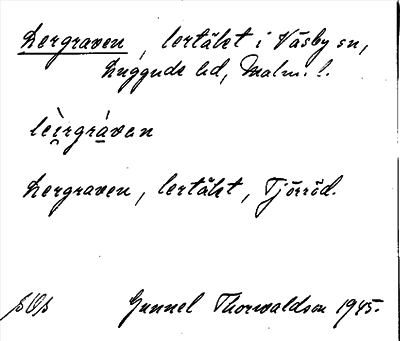 Lergraven, lertäkt i Väsby sn,
Luggude hd, Malm. l.
leìrgrávan
Lergraven, lertäkt, Tjörröd.
Gunnel Thorwaldson 1945.